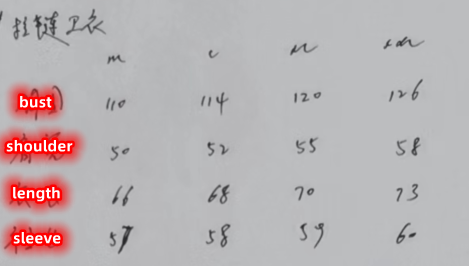 拉链卫衣
m L XL XXL
bust 110 114 120 126
shoulder 50 52 55 58
length 66 68 70 73
sleeve 57 58 59 60